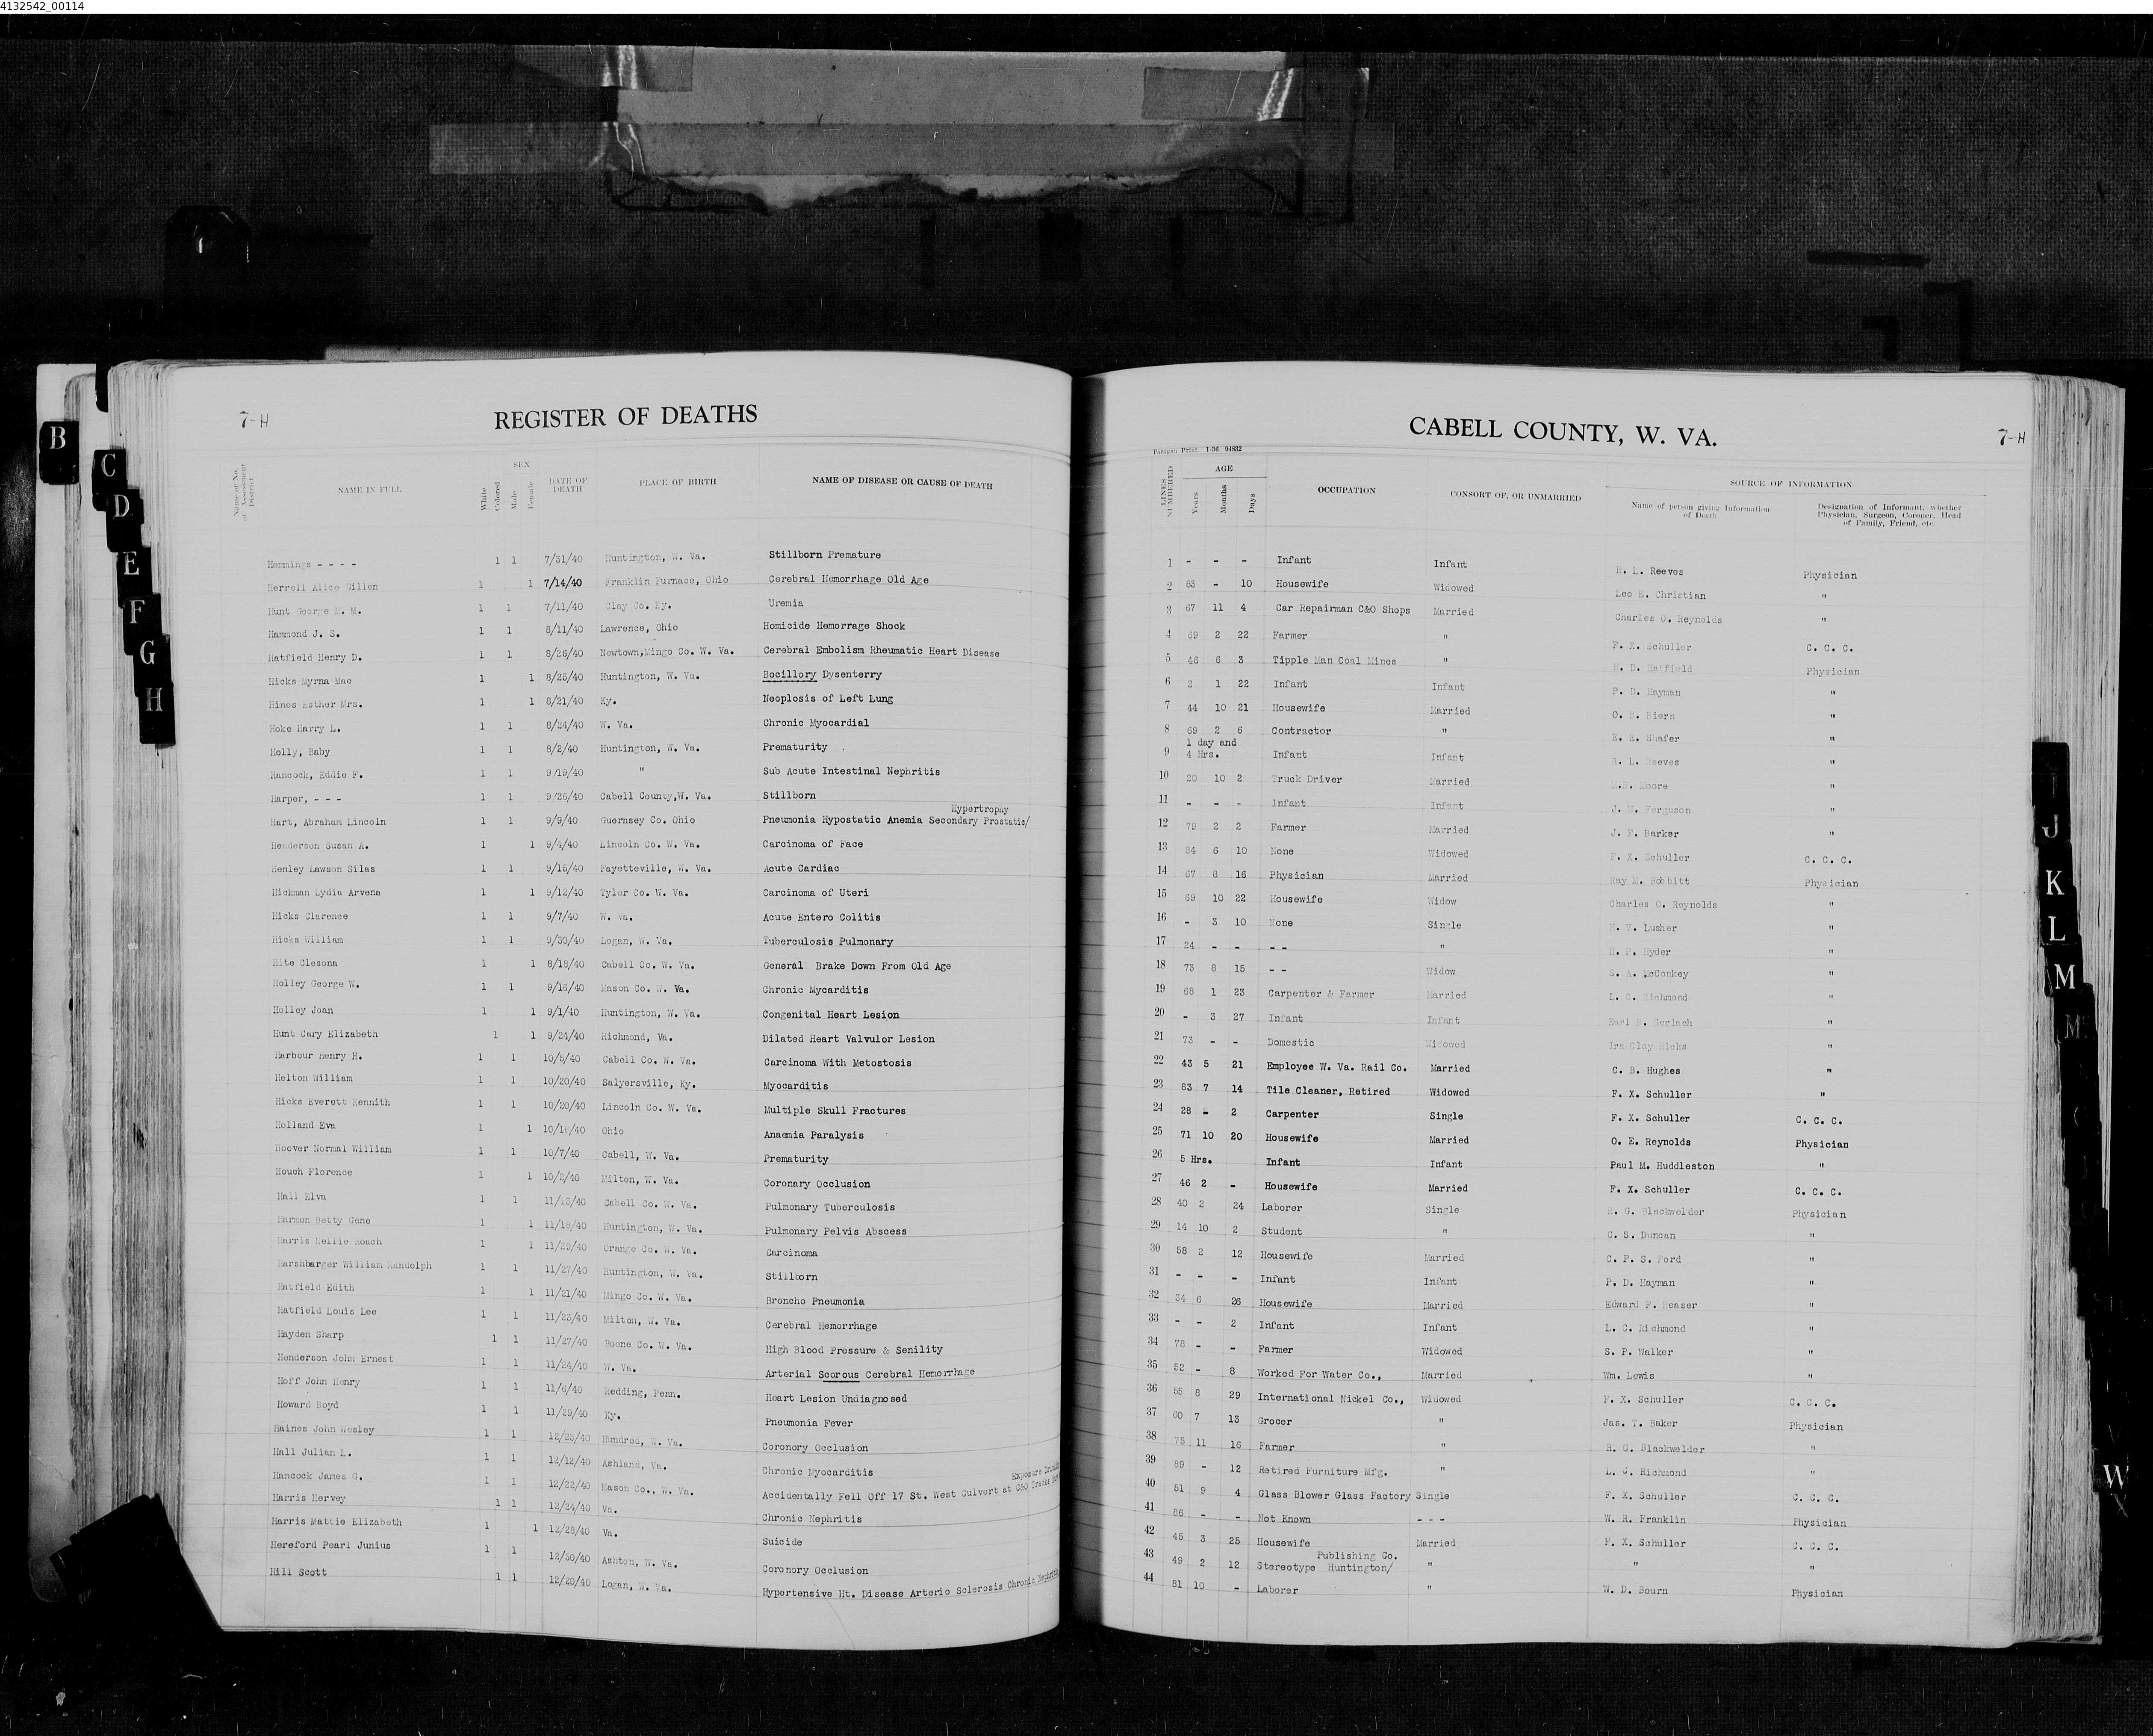 4132542_00114
7-H
REGISTER OF DEATHS
Name or No. of Assessment District
NAME IN FULL
SEX
White
Colored
Male
Female
DATE OF DEATH
PLACE OF BIRTH
NAME OF DISEASE OR CAUSE OF DEATH
Hemmings - - - - 1 1 7/31/40 Huntington, W. Va. Stillborn Premature
Herrell Alice Gillen 1 1 7/14/40 Franklin Furnace, Ohio Cerebral Hemorrhage Old Age
Hunt George M. 1 1 7/11/40 Clay Co. Ky. Uremia
Hammond J. S. 1 1 8/11/40 Lawrence, Ohio Homicide Hemorrage Shock
Hatfield Henry D. 1 1 8/26/40 Newtown,Mingo Co. W. Va. Cerebral Embolism Rheumatic Heart Disease
Hicks Myrna Mae 1 1 8/25/40 Huntington, W. Va. Bocillory Dysenterry
Hines Esther Mrs. 1 1 8/21/40 Ky. Neoplosis of Left Lung
Hoke Harry L. 1 1 8/24/40 W. Va. Chronic Myocardial
Holly, Baby 1 1 8/2/40 Huntington, W. Va. Prematurity
Hancock, Eddie F. 1 1 9/19/40 " Sub Acute Intestinal Nephritis
Harper, - - - 1 1 9/26/40 Cabell County,W. Va. Stillborn
Hart, Abraham Lincoln 1 1 9/9/40 Guernsey Co. Ohio Pneumonia Hypostatic Anemia Secondary Prostatic/ Hypertrophy
Henderson Susan A. 1 1 9/4/40 Lincoln Co. W. Va. Carcinoma of Face
Henley Lawson Silas 1 1 9/15/40 Fayetteville, W. Va. Acute Cardiac
Hickman Lydia Arvena 1 1 9/12/40 Tyler Co. W. Va. Carcinoma of Uteri
Hicks Clarence 1 1 9/7/40 W. Va. Acute Entero Colitis
Hicks William 1 1 9/30/40 Logan, W. Va. Tuberculosis Pulmonary
Hite Clesona 1 1 8/18/40 Cabell Co. W. Va. General Brake Down From Old Age
Holley George W. 1 1 9/16/40 Mason Co. W. Va. Chronic Mycarditis
Holley Joan 1 1 9/1/40 Huntington, W. Va. Congenital Heart Lesion
Hunt Cary Elizabeth 1 1 9/24/40 Richmond, Va. Dilated Heart Valvulor Lesion
Harbour Henry H. 1 1 10/5/40 Cabell Co. W. Va. Carcinoma With Metostosis
Helton William 1 1 10/20/40 Salyersville, Ky. Myocarditis
Hicks Everett Kennith 1 1 10/20/40 Lincoln Co. W. Va. Multiple Skull Fractures
Holland Eva 1 1 10/16/40 Ohio Anaemia Paralysis
Hoover Normal William 1 1 10/7/40 Cabell, W. Va. Prematurity
Houch Florence 1 1 10/2/40 Milton, W. Va. Coronary Occlusion
Hall Elva 1 1 11/13/40 Cabell Co. W. Va. Pulmonary Tuberculosis
Harmon Betty Gene 1 1 11/18/40 Huntington, W. Va. Pulmonary Pelvis Abscess
Harris Nellie Roach 1 1 11/29/40 Orange Co. W. Va. Carcinoma
Harshbarger William Randolph 1 1 11/27/40 Huntington, W. Va. Stillborn
Hatfield Edith 1 1 11/21/40 Mingo Co. W. Va. Broncho Pneumonia
Hatfield Louis Lee 1 1 11/23/40 Milton, W. Va. Cerebral Hemorrhage
Hayden Sharp 1 1 11/27/40 Boone Co. W. Va. High Blood Pressure & Senility
Henderson John Ernest 1 1 11/24/40 W. Va. Arterial Scorous Cerebral Hemorrhage
Hoff John Henry 1 1 11/6/40 Redding, Penn. Heart Lesion Undiagnosed
Howard Boyd 1 1 11/29/40 Ky. Pneumonia Fever
Haines John Wesley 1 1 12/23/40 Hundred, W. Va. Coronory Occlusion
Hall Julian L. 1 1 12/12/40 Ashland, Va. Chronic Myocarditis
Hancock James G. 1 1 12/22/40 Mason Co., W. Va. Accidentally Fell Off 17 St. West Culvert at C&O Tracks Exposure
Harris Hervey 1 1 12/24/40 Va. Chronic Nephritis
Harris Mattie Elizabeth 1 1 12/28/40 Va. Suicide
Hereford Pearl Junius 1 1 12/30/40 Ashton, W. Va. Coronory Occlusion
Hill Scott 1 1 12/20/40 Logan, W. Va. Hypertensive Ht. Disease Arterio Sclerosis Chronic Nephritis
CABELL COUNTY, W. VA.
7-H
Paragon Print. 1-36 94832
LINES NUMBERED
AGE
Years
Months
Days
OCCUPATION
CONSORT OF, OR UNMARRIED
SOURCE OF INFORMATION
Name of person giving Information of Death
Designation of Informant, whether Physician, Surgeon, Coroner, Head of Family, Friend, etc.
1 - - - Infant Infant R. L. Reeves Physician
2 83 - 10 Housewife Widowed Leo E. Christian "
3 67 11 4 Car Repairman C&O Shops Married Charles O. Reynolds "
4 69 2 22 Farmer " F. X. Schuller C. C. C.
5 46 6 3 Tipple Man Coal Mines " H. D. Hatfield Physician
6 2 1 22 Infant Infant P. D. Hayman "
7 44 10 21 Housewife Married O. B. Biern "
8 69 2 6 Contractor " E. E. Shafer "
9 1 day and 4 Hrs. Infant Infant R. L. Reeves "
10 20 10 2 Truck Driver Married Moore "
11 - - - Infant Infant J. W. Ferguson "
12 79 2 2 Farmer Married J. F. Barker "
13 84 6 10 None Widowed F. X. Schuller C. C. C.
14 67 8 16 Physician Married Ray M. Bobbitt Physician
15 69 10 22 Housewife Widow Charles O. Reynolds "
16 - 3 10 None Single H. V. Lusher "
17 24 - - - - " H. P. Hyder "
18 73 8 15 - - Widow S. A. McConkey "
19 68 1 23 Carpenter & Farmer Married L. C. Richmond "
20 - 3 27 Infant Infant Earl B. Gerlach "
21 73 - - Domestic Widowed Ira Clay Hicks "
22 43 5 21 Employee W. Va. Rail Co. Married C. B. Hughes "
23 83 7 14 Tile Cleaner, Retired Widowed F. X. Schuller "
24 28 - 2 Carpenter Single F. X. Schuller C. C. C.
25 71 10 20 Housewife Married O. E. Reynolds Physician
26 5 Hrs. Infant Infant Paul M. Huddleston "
27 46 2 - Housewife Married F. X. Schuller C. C. C.
28 40 2 24 Laborer Single R. G. Blackwelder Physician
29 14 10 2 Student " C. S. Duncan "
30 58 2 12 Housewife Married C. P. S. Ford "
31 - - - Infant Infant P. D. Hayman "
32 34 6 26 Housewife Married Edward F. Heaser "
33 - - 2 Infant Infant L. C. Richmond "
34 78 - - Farmer Widowed S. P. Walker "
35 52 - 8 Worked For Water Co., Married Wm. Lewis "
36 55 8 29 International Nickel Co., Widowed F. X. Schuller C. C. C.
37 60 7 13 Grocer " Jas. T. Baker Physician
38 75 11 16 Farmer " R. G. Blackwelder "
39 89 - 12 Retired Furniture Mfg. " L. C. Richmond "
40 51 9 4 Glass Blower Glass Factory Single F. X. Schuller C. C. C.
41 86 - - Not Known - - - W. R. Franklin Physician
42 45 3 25 Housewife Married F. X. Schuller C. C. C.
43 49 2 12 Stereotype Huntington/ Publishing Co. " " "
44 81 10 - Laborer " W. D. Bourn Physician
B
C
D
E
F
G
H
I
J
K
L
M
W
X